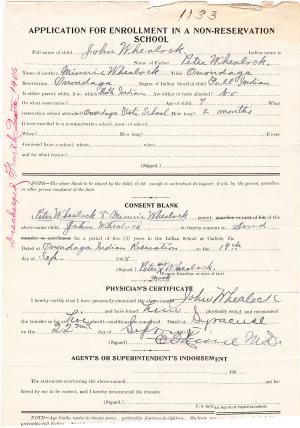 1133
APPLICATION FOR ENROLLMENT IN A NON-RESERVATION
SCHOOL
Full name of child John Wheelock Indian name is
Name of Father Peter Wheelock
Name of mother Minnie Wheelock Tribe Onondaga
Reservation Onondaga Degree of Indian blood of child Full Indian
Is either parent white, if so, which Both Indian Are either or both allotted? No.
On what reservation? Age of child? 7 What
reservation school attended? Onondaga State School How long? 2 months
If ever enrolled in a nonreservation school, name of school
When? How long? If ever
dismissed from a school, where when
and for what reason?
(Signed)
NOTE—The above blank to be signed by the child, if old enough to understand its import; if not, by the parent, guardian or other person competent of the facts.
CONSENT BLANK
I, Peter Wheelock & Minnie Wheelock parent, guardian or next of kin of the
above-named child John Wheelock do hereby consent to Send
transfer or enrollment for a period of five (5) years in the Indian School at Carlisle, Pa.
Dated at Onondaga Indian Reservation on the 18th
day of Sep. 1905
(Signed) Peter his Wheelock.
mark
Parent, Guardian or next of kin
PHYSICIAN'S CERTIFICATE
I hereby certify that I have personally examined the above-named John Wheelock
and have found him physically sound, and recommend
the transfer so far as health conditions are concerned. Dated at Syracuse
on the 22nd day of Sept
(Signed) M.D.
AGENT'S OR SUPERINTENDENT'S INDORSEMENT
190
The statements concerning the above-named
ed by me to be correct, and I hereby recommend the transfer
(Signed)
U. S. Indian Agent or Superintendent.